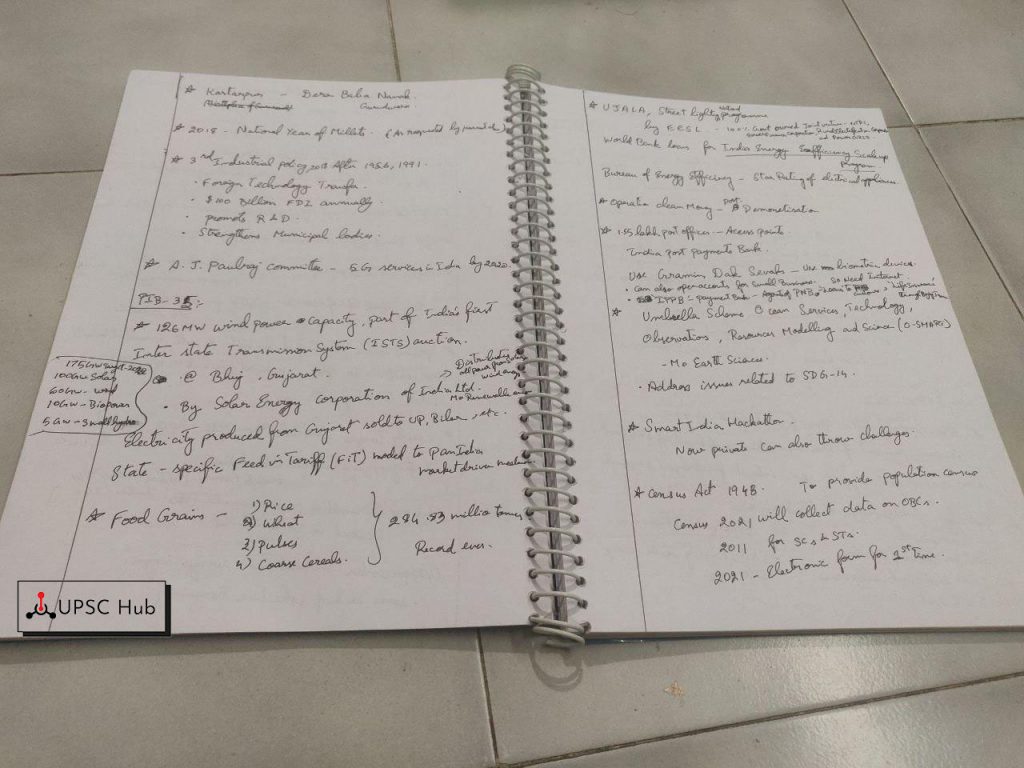 * Kartarpur - Dera Baba Nanak
Gurudwara
* 2018 - National Year of Millets. (As requested by
* 3rd Industrial policy, 2018 After 1956, 1991.
· Foreign Technology Transfer
· $100 Billion FDI annually.
· promote R & D.
· Strengthens Municipal bodies.
* A. J. Paulraj committee - 5G services in India by 2020.
PIB-3
* 126 MW wind power Capacity, part of India's first
Inter state Transmission System (ISTS) auction.
· @ Bhuj, Gujarat.
· By Solar Energy Corporation of India Ltd.
→ Distributing
all power from
wind energy
Mo Renewable
175GW
100GW Solar
60GW - Wind
10GW - Biopower
5GW - Small hydro
Electricity produced from Gujarat sold to UP, Bihar, etc.
State - specific Feed in Tariff (FiT) model to PanIndia
market driven
* Food Grains -
1) Rice
2) Wheat
3) Pulses
4) Coarse Cereals.
284.83 million tonnes
Record ever.
* UJALA, Street light National programme
by EESL - 100% Govt owned
World Bank loan for India Energy Efficiency Scale up
Program
Bureau of Energy Efficiency - Star Rating of electrical appliances.
* Operation clean Money - post Demonetisation
* 1.55 lakh post offices - Access points
India post payments Bank.
Use Gramin Dak Sevaks - Use biometric devices.
· Can also open accounts for Small Business. so Need Internet.
· IPPB - payment Bank - Agent of PNB
* Umbrella Scheme Ocean Services, Technology,
Observations, Resources Modelling and Science (O-SMART)
- Mo Earth Sciences.
· Address issues related to SDG-14.
* Smart India Hackathon.
Now private can also throw challenges.
* Census Act 1948. To provide population census
Census 2021 will collect data on OBCs.
2011 for SCs & STs.
2021 - Electronic form for 1st time.
UPSC Hub